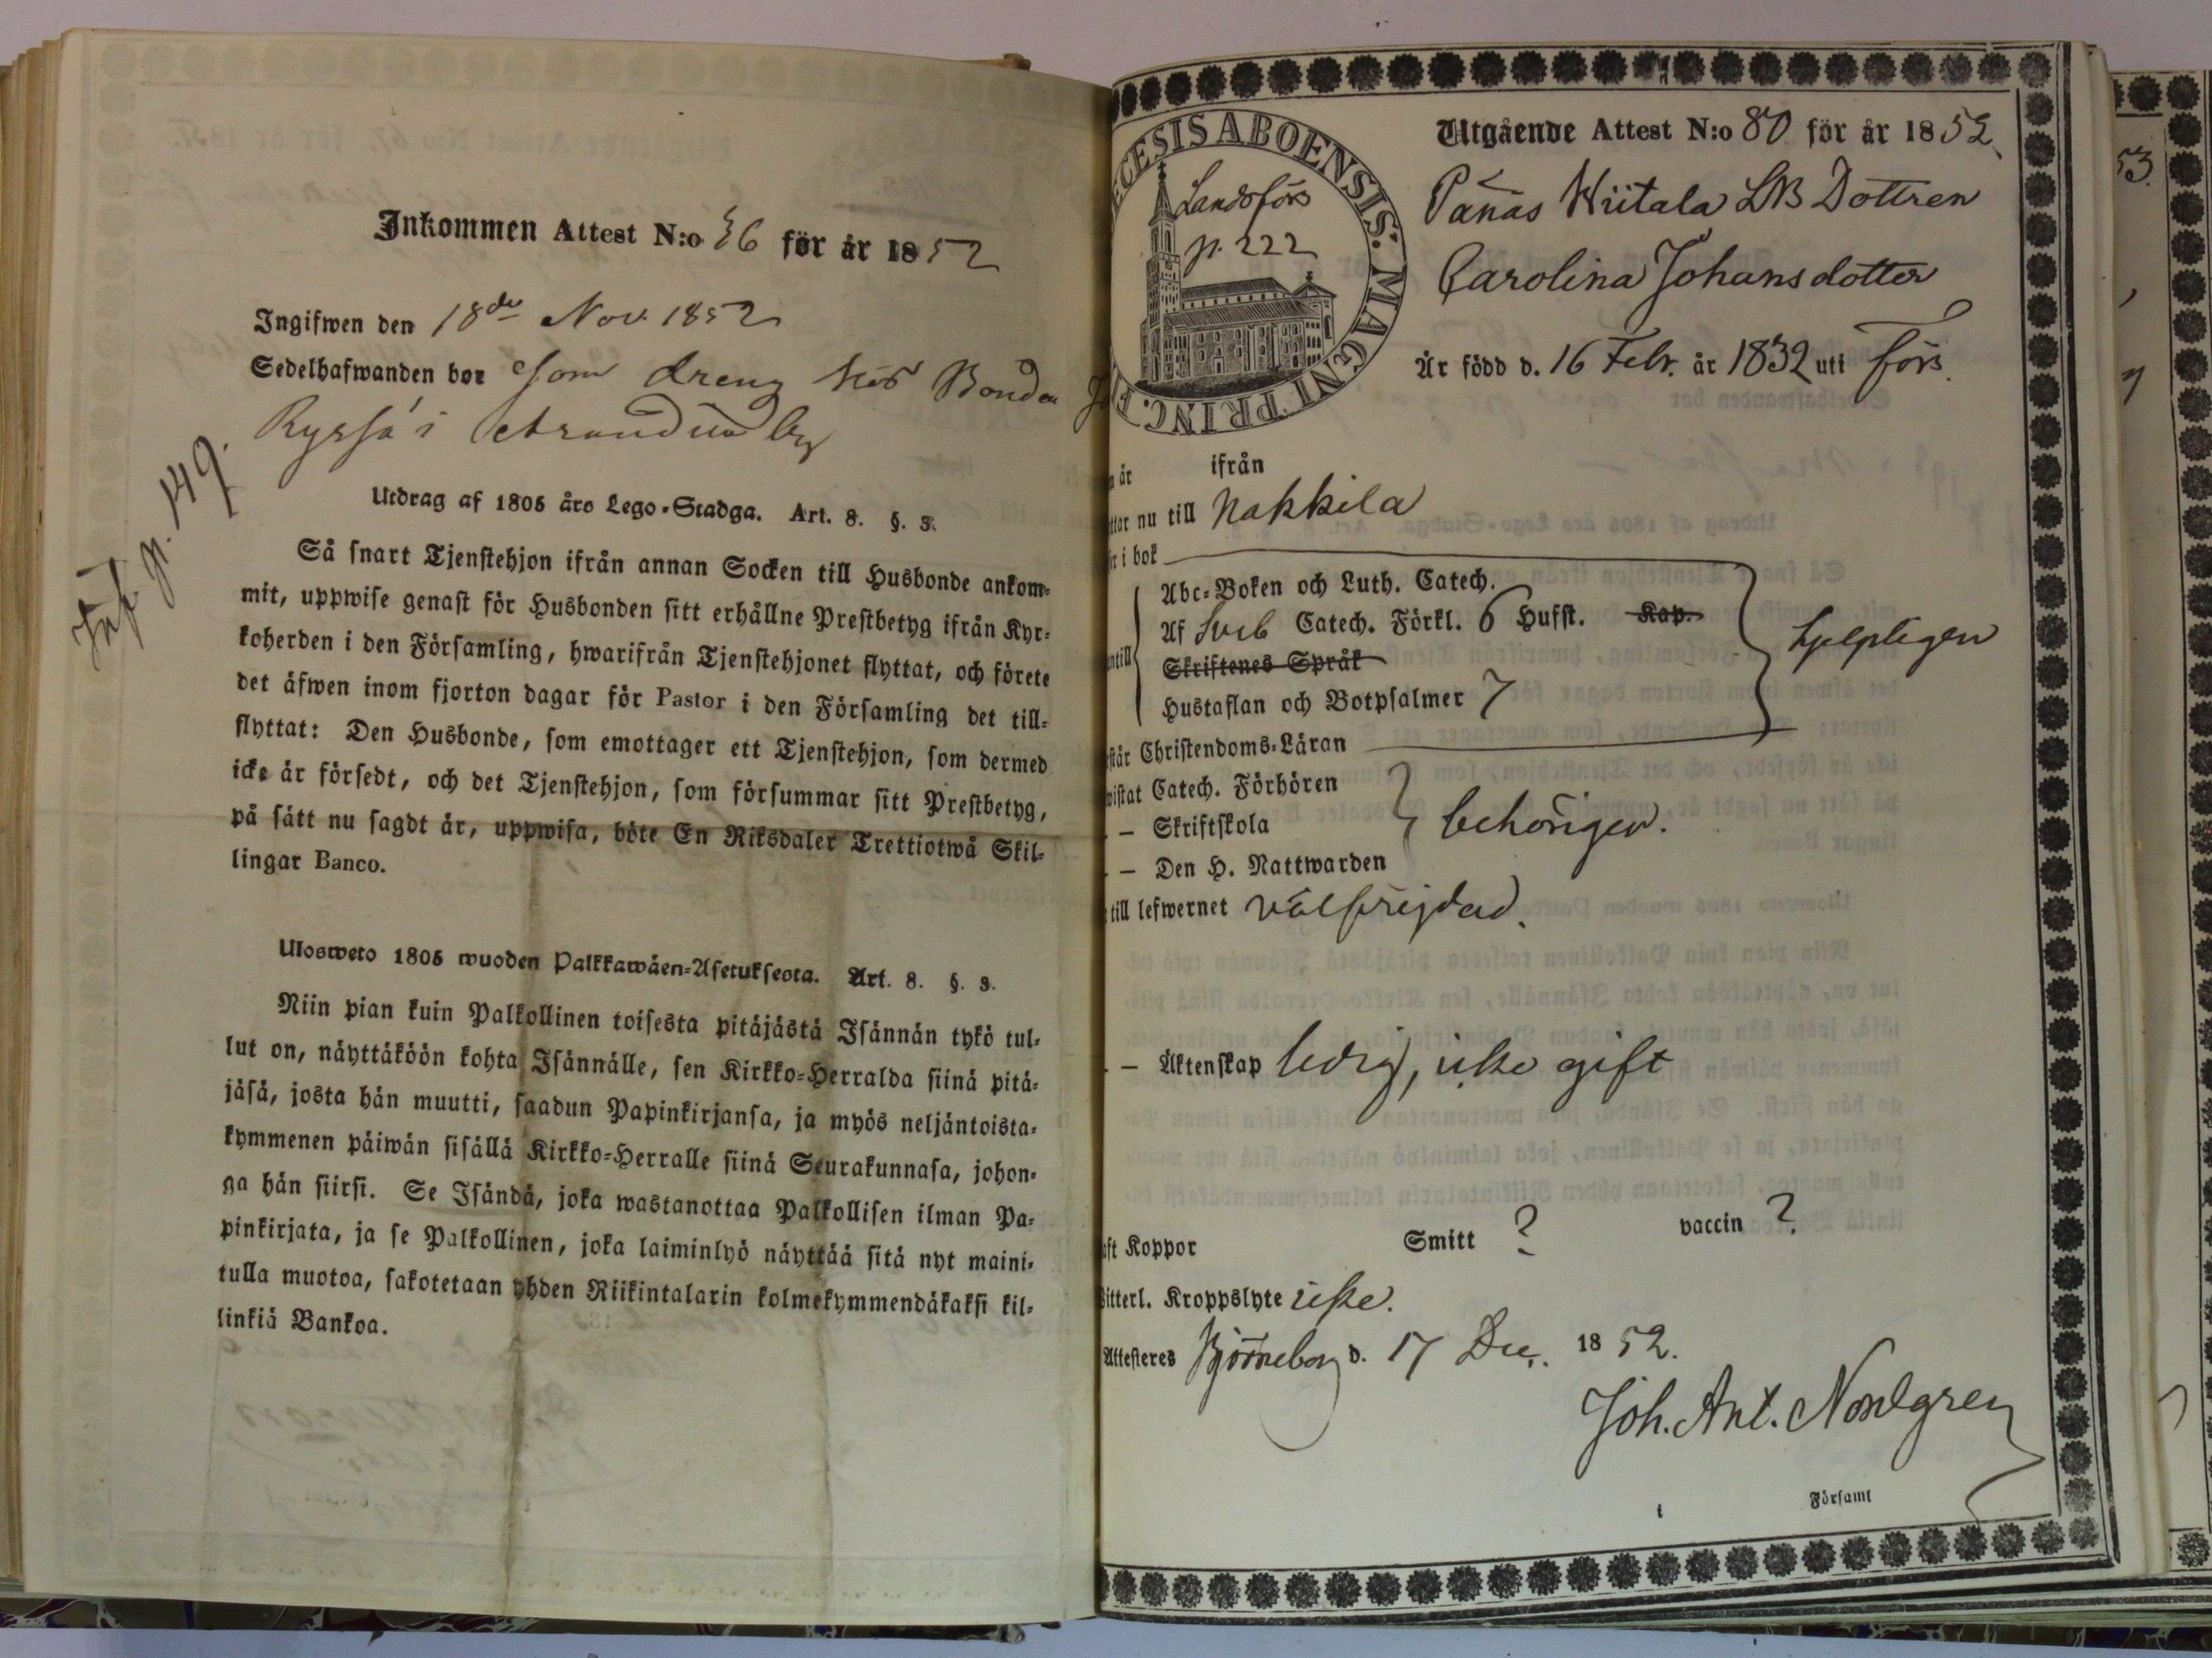 Inkommen Attest N:o 36 för år 1852
Ingifwen den 18de Nov. 1852
Sedelhafwanden bor som dreng hos Bonden
Ryssä i by
Inf. p. 149.
Utdrag af 1805 års Lego-Stadga. Art. 8. §. 3.
Så snart Tjenstehjon ifrån annan Socken till Husbonde ankom-
mit, uppwise genast för Husbonden sitt erhållne Prestbetyg ifrån Kyr-
koherden i den Församling, hwarifrån Tjenstehjonet flyttat, och förete
det äfwen inom fjorton dagar för Pastor i den Församling det till-
flyttat: Den Husbonde, som emottager ett Tjenstehjon, som dermed
icke är försedt, och det Tjenstehjon, som försummar sitt Prestbetyg,
på sätt nu sagdt är, uppwisa, böte En Riksdaler Trettiotwå Skil-
lingar Banco.
Ulosweto 1805 wuoden Palkkawäen-Asetuksesta. Art. 8. §. 3.
Niin pian kuin Palkollinen toisesta pitäjästä Isännän tykö tul-
lut on, näyttäköön kohta Isännälle, sen Kirkko-Herralda siinä pitä-
jäsä, josta hän muutti, saadun Papinkirjansa, ja myös neljäntoista-
kymmenen päiwän sisällä Kirkko-Herralle siinä Seurakunnasa, johon-
ga hän siirsi. Se Isändä, joka wastanottaa Palkollisen ilman Pa-
pinkirjata, ja se Palkollinen, joka laiminlyö näyttää sitä nyt maini-
tulla muotoa, sakotetaan yhden Riikintalarin kolmekymmendäkaksi kil-
linkiä Bankoa.
ECESIS ABOENSIS. MAGNI PRINC.
Landsförs
p. 222
Utgående Attest N:o 80 för år 1852.
Pänäs Wiitala LB Dottren
Carolina Johansdotter
Är född d. 16 Febr. år 1832 uti förs.
är ifrån
nu till Nakkila
i bok
Abc-Boken och Luth. Catech.
Af Sveb Catech. Förkl. 6 Hufst. Kap.
Skriftenes Språk
Hustaflan och Botpsalmer 7
hjelpligen
Christendoms-Läran
Catech. Förhören
– Skriftskola
– Den H. Nattwarden
behörigen.
till lefwernet välfrejdad.
– Äktenskap ledig, icke gift
Koppor Smitt ? vaccin ?
Kroppslyte icke.
Attesteres Björneborg d. 17 Dec. 1852.
Joh. Ant. Nordgren
i Församl
53.